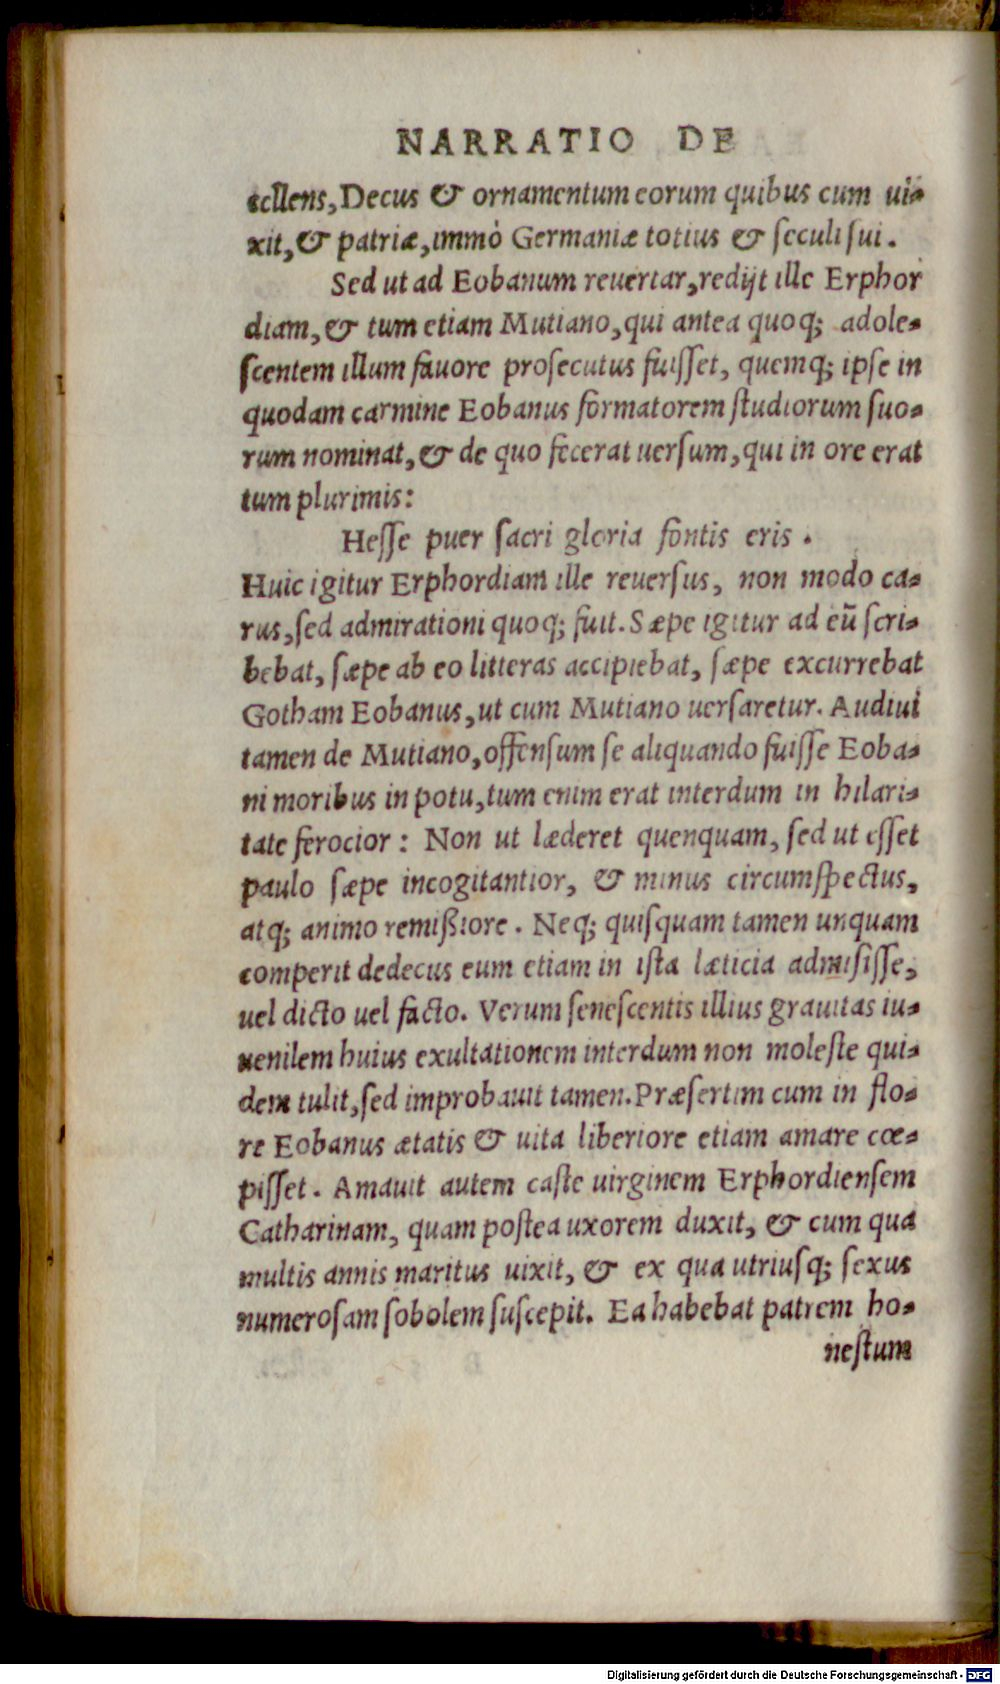 NARRATIO DE
cellens, Decus & ornamentum eorum quibus cum ui-
xit, & patriæ, immò Germaniæ totius & seculi sui.
Sed ut ad Eobanum reuertar, redijt ille Erphor
diam, & tum etiam Mutiano, qui antea quoq; adole-
scentem illum fauore prosecutus fuisset, quemq; ipse in
quodam carmine Eobanus formatorem studiorum suo-
rum nominat, & de quo fecerat uersum, qui in ore erat
tum plurimis:
Hesse puer sacri gloria fontis eris.
Huic igitur Erphordiam ille reuersus, non modo ca-
rus, sed admirationi quoq; fuit. Sæpe igitur ad eū scri-
bebat, sæpe ab eo litteras accipiebat, sæpe excurrebat
Gotham Eobanus, ut cum Mutiano uersaretur. Audiui
tamen de Mutiano, offensum se aliquando fuisse Eoba-
ni moribus in potu, tum enim erat interdum in hilari-
tate ferocior: Non ut læderet quenquam, sed ut esset
paulo sæpe incogitantior, & minus circumspectus,
atq; animo remißiore. Neq; quisquam tamen unquam
comperit dedecus eum etiam in ista læticia admisisse,
uel dicto uel facto. Verum senescentis illius grauitas iu-
uenilem huius exultationem interdum non moleste qui-
dem tulit, sed improbauit tamen. Præsertim cum in flo-
re Eobanus ætatis & uita liberiore etiam amare cœ-
pisset. Amauit autem caste uirginem Erphordiensem
Catharinam, quam postea uxorem duxit, & cum qua
multis annis maritus uixit, & ex qua utriusq; sexus
numerosam sobolem suscepit. Ea habebat patrem ho-
nestum
Digitalisierung gefördert durch die Deutsche Forschungsgemeinschaft - DFG